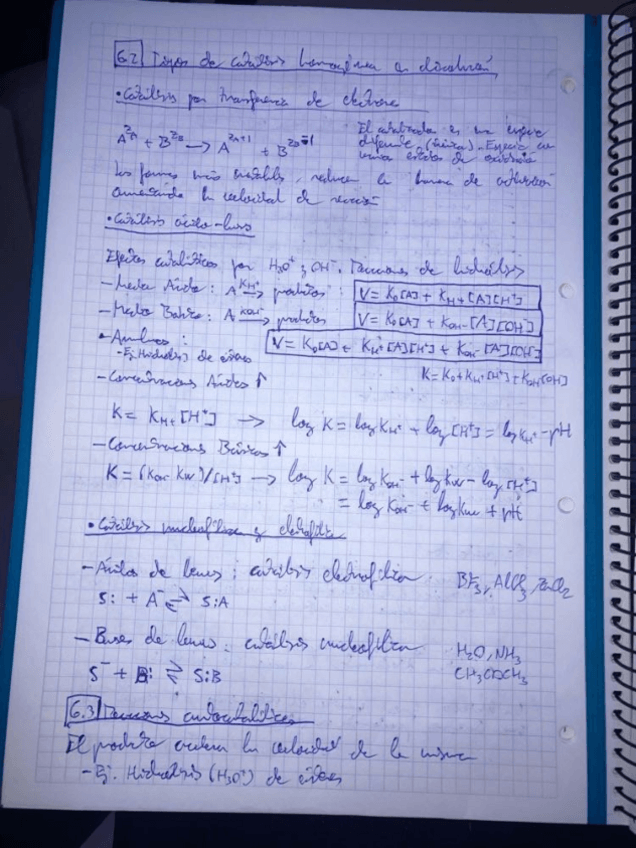 6.2 Tipos de catálisis homogénea en disolución
• Catálisis por transferencia de electrones
A^ZA + B^ZB → A^ZA+1 + B^ZB-1
El catalizador es una especie
diferente (iónica). Especie con
varios estados de oxidación
las formas más estables, reducen la barrera de activación
aumentando la velocidad de reacción
• Catálisis ácido-base
Efectos catalíticos por H3O+ y OH-. Reacciones de hidrólisis
- Medio Ácido: A KH+→ productos: V = K0[A] + KH+[A][H+]
- Medio Básico: A KOH-→ productos V = K0[A] + KOH-[A][OH-]
• Ambos: V = K0[A] + KH+[A][H+] + KOH-[A][OH-]
- Ej. Hidrólisis de ésteres
K = K0 + KH+[H+] + KOH[OH]
- Concentraciones Ácidas ↑
K = KH+[H+] → log K = log KH+ + log [H+] = log KH+ - pH
- Concentraciones Básicas ↑
K = (KOH- KW)/[H+] → log K = log KOH- + log KW - log [H+]
= log KOH- + log KW + pH
• Catálisis nucleofílica y electrofílica
- Ácidos de Lewis: catálisis electrofílica BF3, AlCl3, ZnCl2
S: + A- ⇌ S:A
- Bases de Lewis: catálisis nucleofílica H2O, NH3
S- + B: ⇌ S:B CH3COCH3
6.3 Reacciones autocatalíticas
El producto acelera la velocidad de la misma
- Ej. Hidrólisis (H3O+) de ésteres